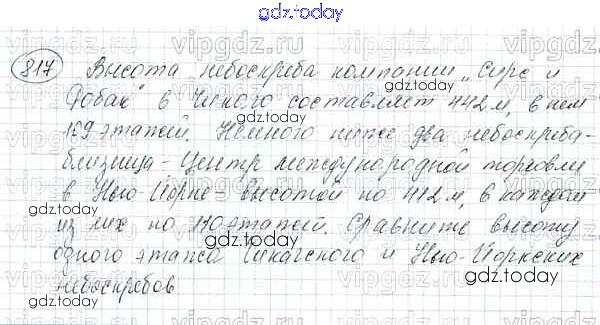 gdz.today
817 Высота небоскреба компании „Сирс и
Робак" в Чикаго составляет 442 м, в нем
109 этажей. Немного ниже два небоскреба-
близнеца - Центр международной торговли
в Нью-Йорке высотой по 412 м, в каждом
из них по 110 этажей. Сравните высоту
одного этажа Чикагского и Нью-Йоркских
небоскребов
gdz.today
gdz.today
gdz.today
gdz.today
gdz.today
gdz.today
gdz.today